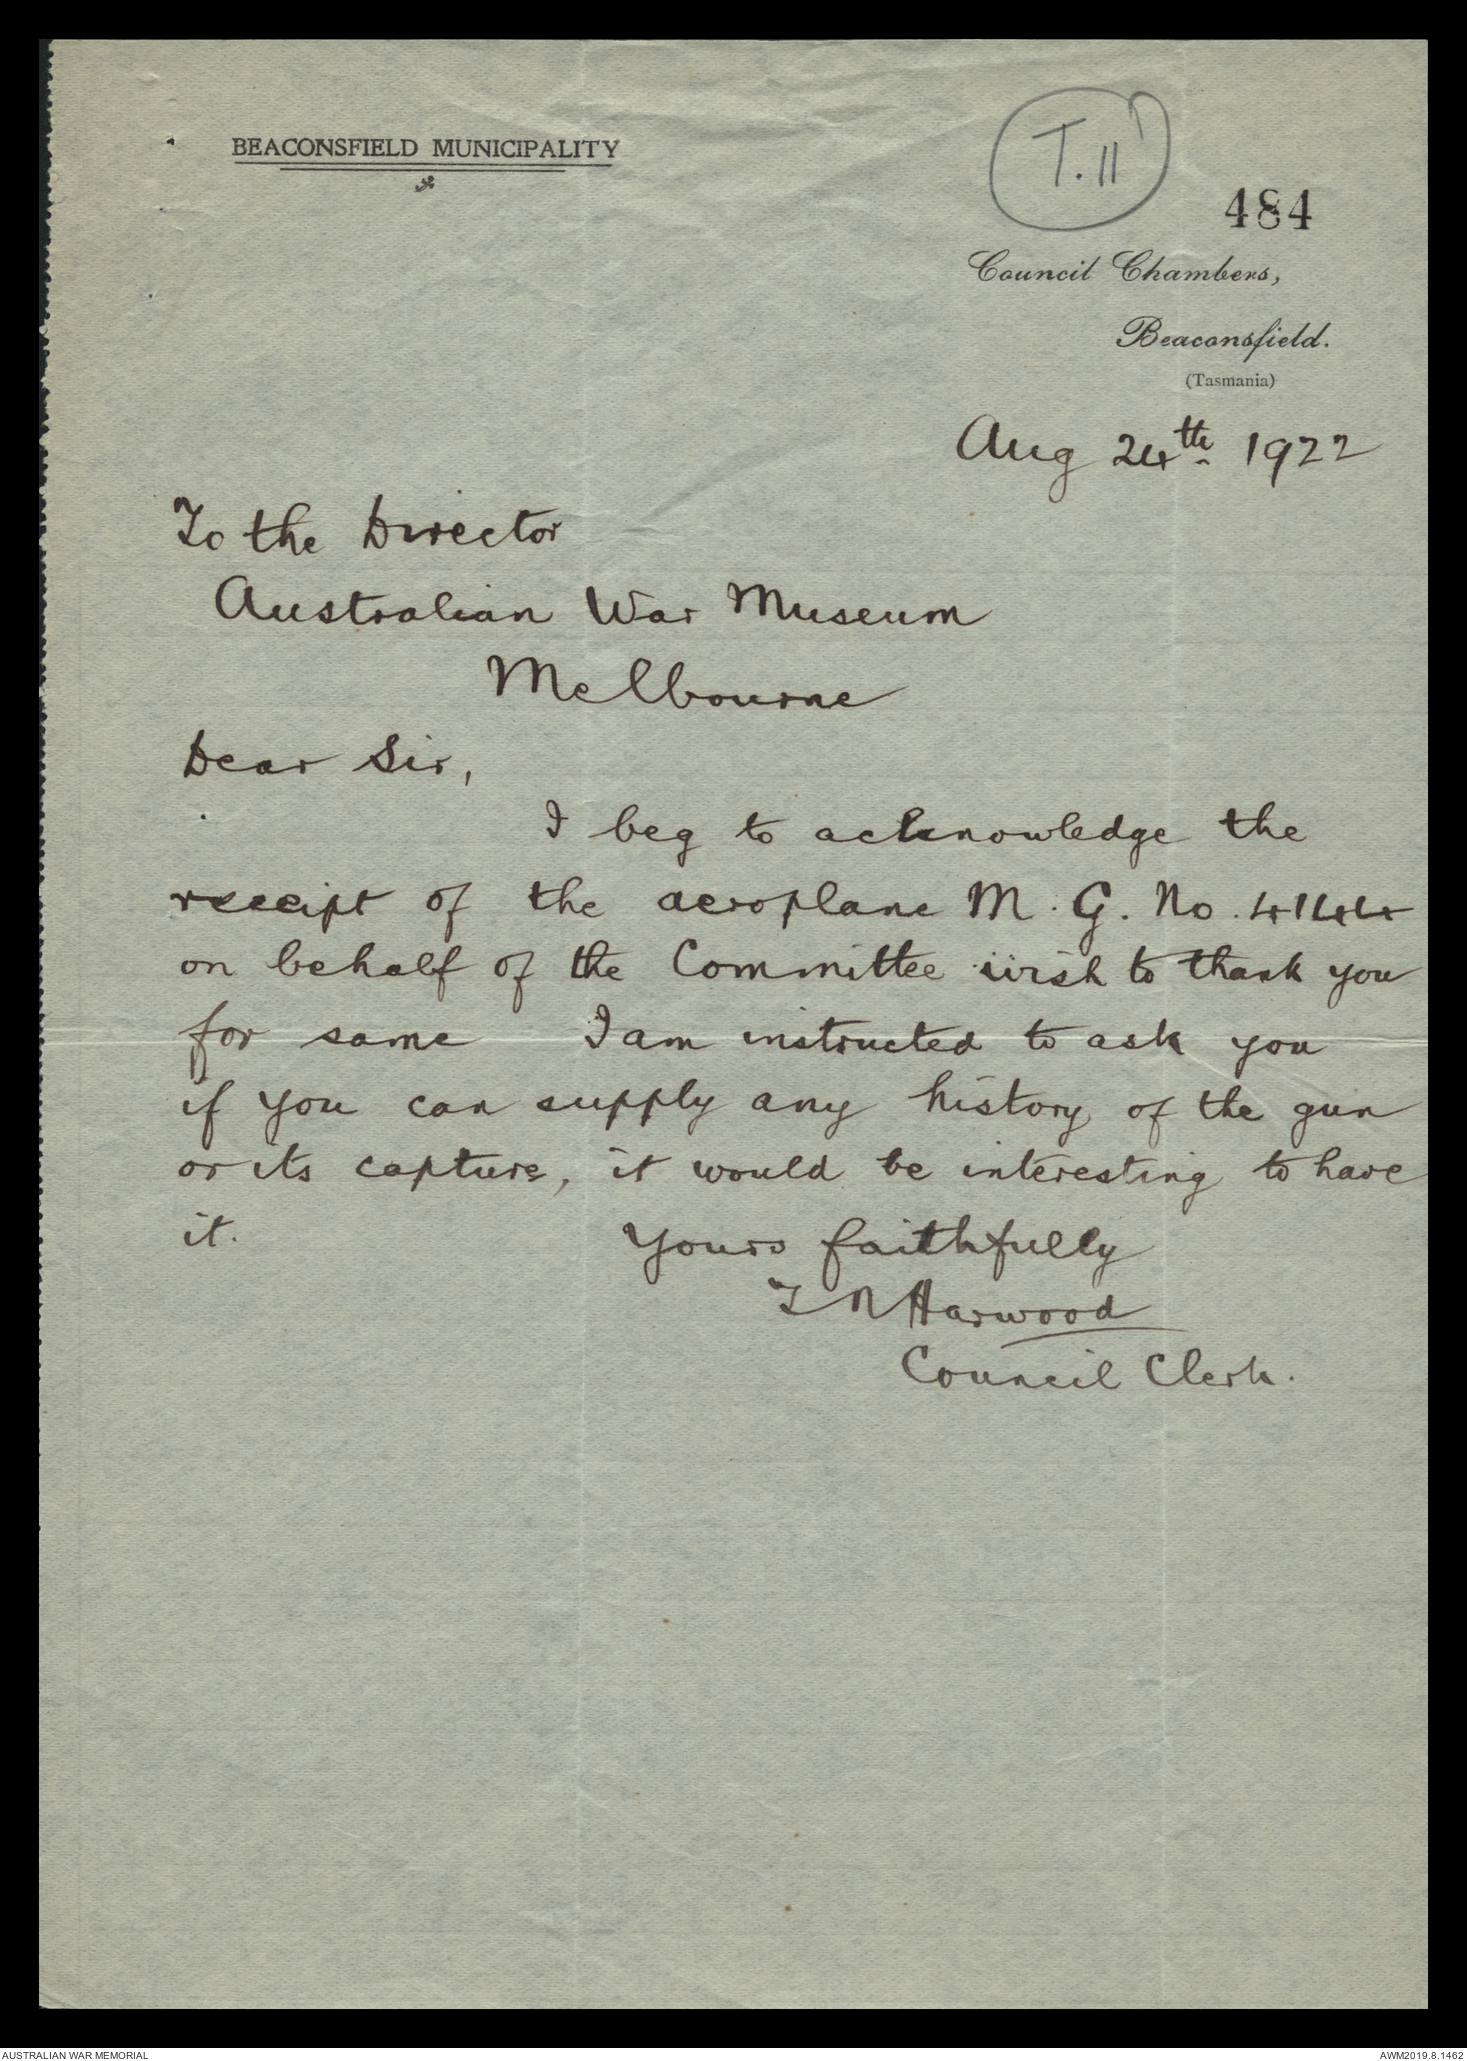 BEACONSFIELD MUNICIPALITY
T.11
484
Council Chambers,
Beaconsfield.
(Tasmania)
Aug 24th 1922
To the Director
Australian War Museum
Melbourne
Dear Sir,
I beg to acknowledge the
receipt of the aeroplane M.G. No. 4144
on behalf of the Committee wish to thank you
for same I am instructed to ask you
if you can supply any history of the gun
or its capture, it would be interesting to have
it.
Yours faithfully
Harwood
Council Clerk.
AUSTRALIAN WAR MEMORIAL
AWM2019.8.1462